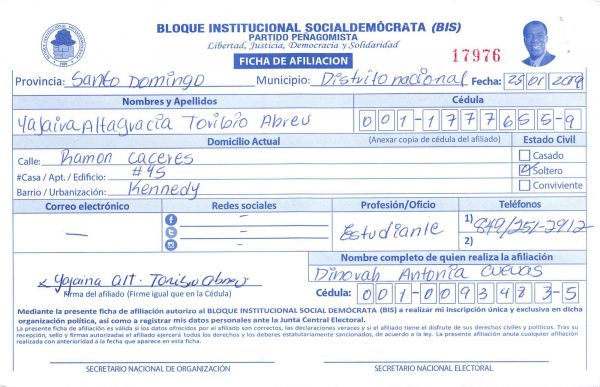 BLOQUE INSTITUCIONAL SOCIALDEMÓCRATA (BIS)
PARTIDO PEÑAGOMISTA
Libertad, Justicia, Democracia y Solidaridad
FICHA DE AFILIACION
17976
Provincia: Santo Domingo Municipio: Distrito nacional Fecha: 25 01 2019
Nombres y Apellidos Cédula
Yajaira Altagracia Toribio Abreu 001-1777655-9
Domicilio Actual (Anexar copia de cédula del afiliado) Estado Civil
Calle: Ramon Caceres Casado
#Casa / Apt. / Edificio: #45 Soltero
Barrio / Urbanización: Kennedy Conviviente
Correo electrónico Redes sociales Profesión/Oficio Teléfonos
— – Estudiante 1) 849/251-2912
– 2)
–
Nombre completo de quien realiza la afiliación
Yajaira alt. Toribio Abreu Dinovah Antonia Cuevas
Firma del afiliado (Firme igual que en la Cédula) Cédula: 001-0093483-5
Mediante la presente ficha de afiliación autorizo al BLOQUE INSTITUCIONAL SOCIAL DEMÓCRATA (BIS) a realizar mi inscripción única y exclusiva en dicha
organización política, así como a registrar mis datos personales ante la Junta Central Electoral.
La presente ficha de afiliación es válida si los datos ofrecidos por el afiliado son correctos, las declaraciones veraces y si el afiliado tiene el disfrute de sus derechos civiles y políticos. Tras su
recepción, sello y firmas autorizadas el afiliado ejercerá todos los derechos y los deberes estatutariamente sancionados, de acuerdo a la ley. La presente afiliación anula cualquier afiliación
realizada con anterioridad a la fecha que aparece en esta ficha.
SECRETARIO NACIONAL DE ORGANIZACIÓN SECRETARIO NACIONAL ELECTORAL